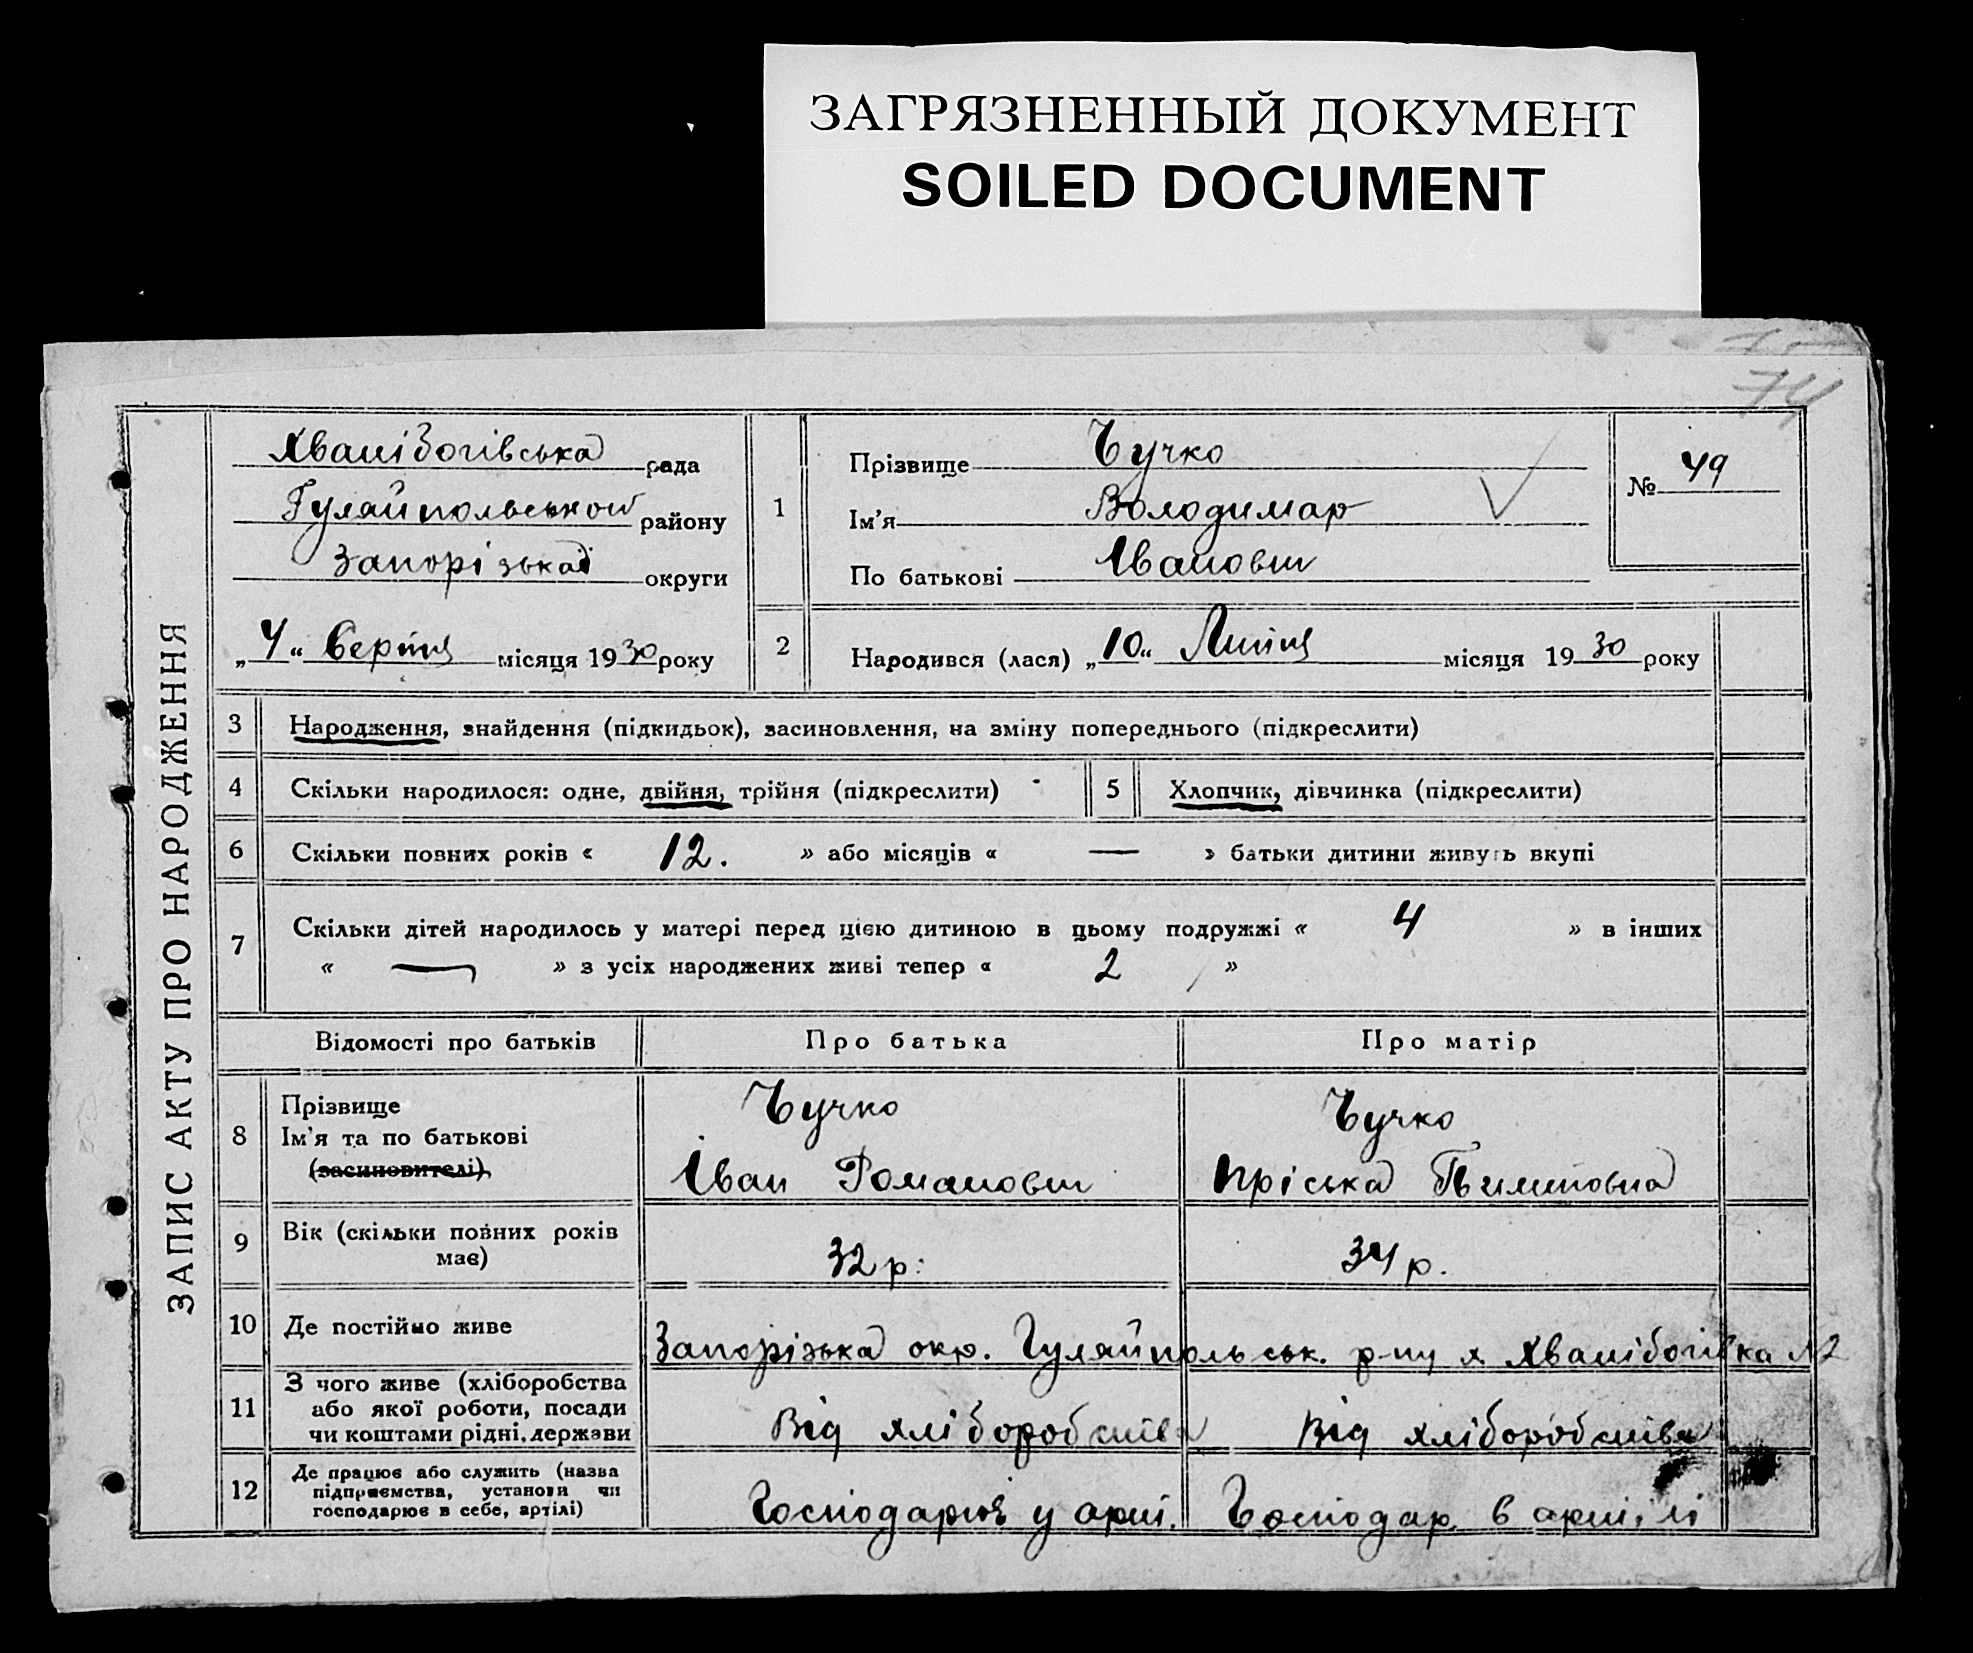 ЗАГРЯЗНЕННЫЙ ДОКУМЕНТ
SOILED DOCUMENT
74
ЗАПИС АКТУ ПРО НАРОДЖЕННЯ
Хванібогівська рада
Гуляйпольською району
Запорізької округи
„4“ Серпня місяця 1930 року
1
Прізвище Бучко
Ім'я Володимар
По батькові Іванович
№ 49
2
Народився (лася) „10“ Липня місяця 1930 року
3 Народження, знайдення (підкидьок), засиновлення, на зміну попереднього (підкреслити)
4 Скільки народилося: одне, двійня, трійня (підкреслити)
5 Хлопчик, дівчинка (підкреслити)
6 Скільки повних років « 12. » або місяців « — » батьки дитини живуть вкупі
7 Скільки дітей народилось у матері перед цією дитиною в цьому подружжі « 4 » в інших
« — » з усіх народжених живі тепер « 2 »
Відомості про батьків Про батька Про матір
8 Прізвище
Ім'я та по батькові
(засиновителі)
Бучко
Іван Романович
Бучко
Пріська
9 Вік (скільки повних років
має)
32 р.
34 р.
10 Де постійно живе
Запорізька окр. Гуляйпольськ. р-ну х. Хванібогівка №2
11 З чого живе (хліборобства
або якої роботи, посади
чи коштами рідні, держави
Від хліборобства
Від хліборобства
12 Де працює або служить (назва
підприємства, установи чи
господарює в себе, артілі)
Господарює у арт.
Господар. в артілі